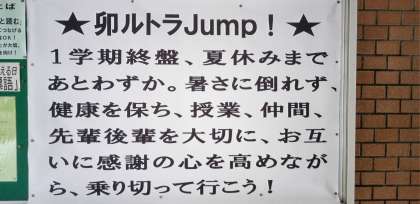 ★卯ルトラJump！★
１学期終盤、夏休みまで
あとわずか。暑さに倒れず、
健康を保ち、授業、仲間、
先輩後輩を大切に、お互
いに感謝の心を高めなが
ら、乗り切って行こう！